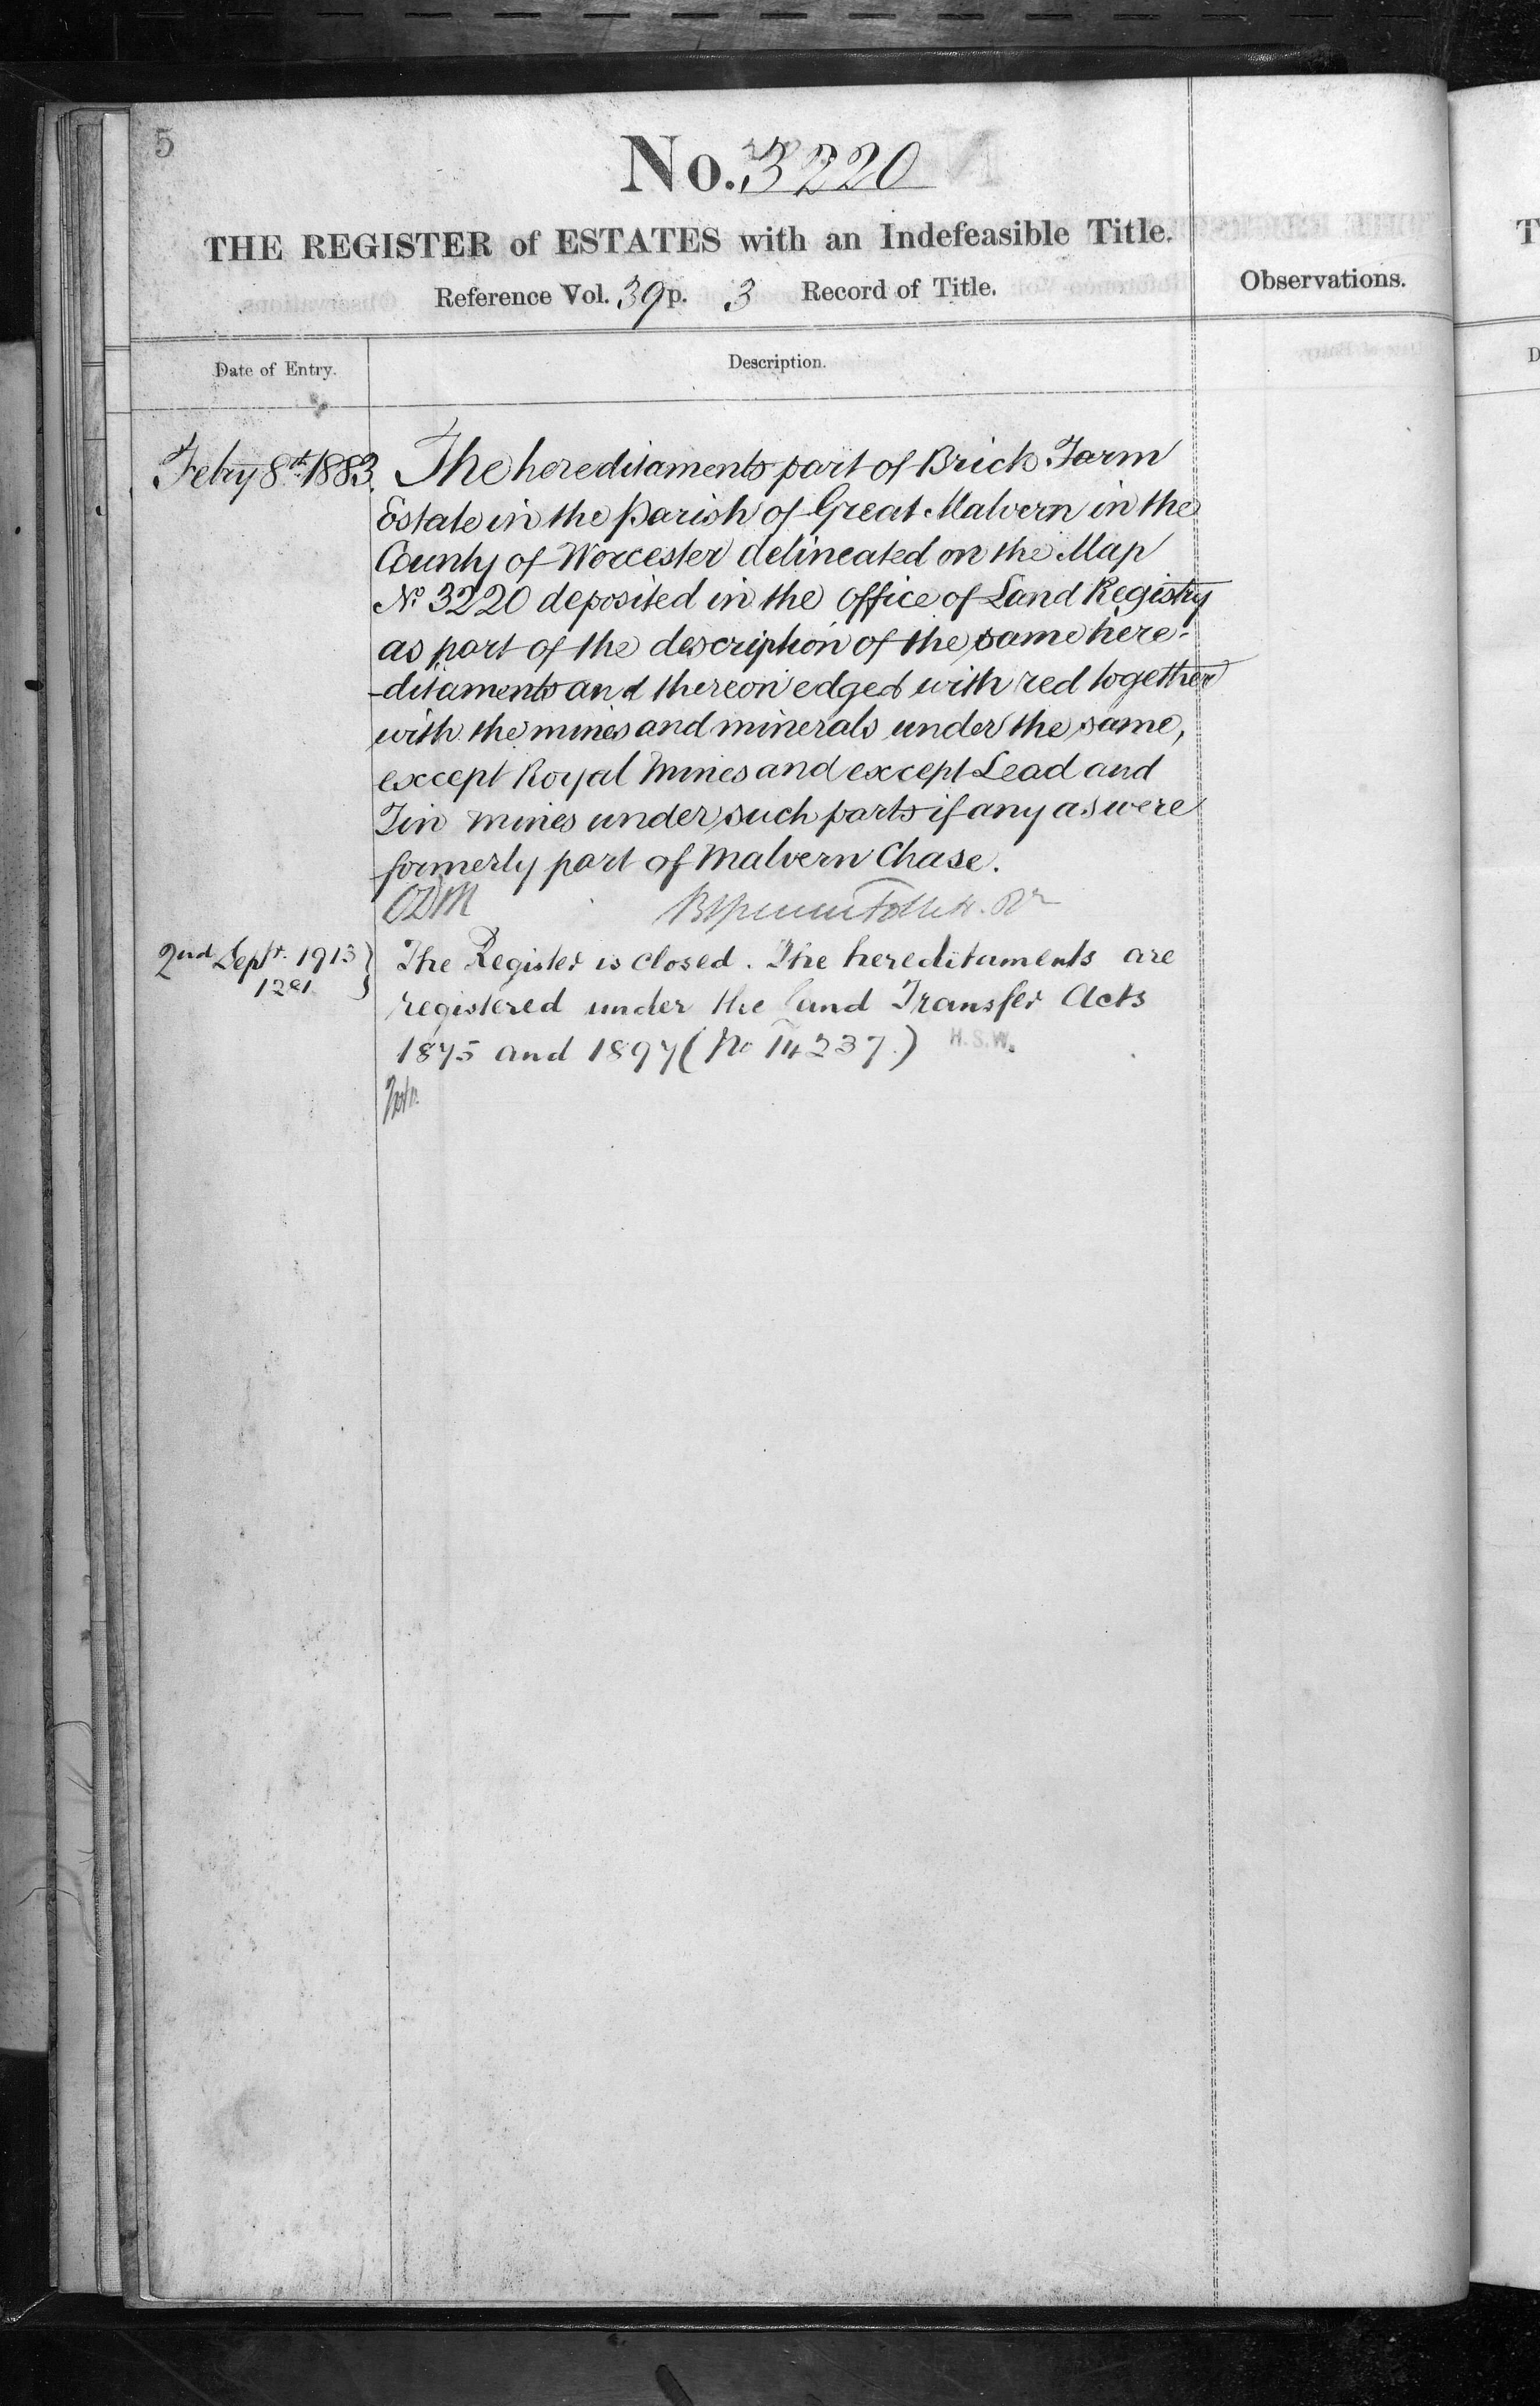 5
No. 3220
THE REGISTER of ESTATES with an Indefeasible Title.
Reference Vol. 39 p. 3 Record of Title.
Observations.
Date of Entry.
Description.
Febry 8th 1883. The hereditaments part of Brick Farm
Estate in the Parish of Great Malvern in the
County of Worcester delineated on the Map
No 3220 deposited in the office of Land Registry
as part of the description of the same here-
-ditaments and thereon edged with red together
with the mines and minerals under the same,
except Royal Mines and except Lead and
Tin mines under such parts if any as were
formerly part of Malvern Chase.
ODM
2nd Sept. 1913 } The Register is closed. The hereditaments are
registered under the Land Transfer Acts
1875 and 1897 (No 14237.) H.S.W.